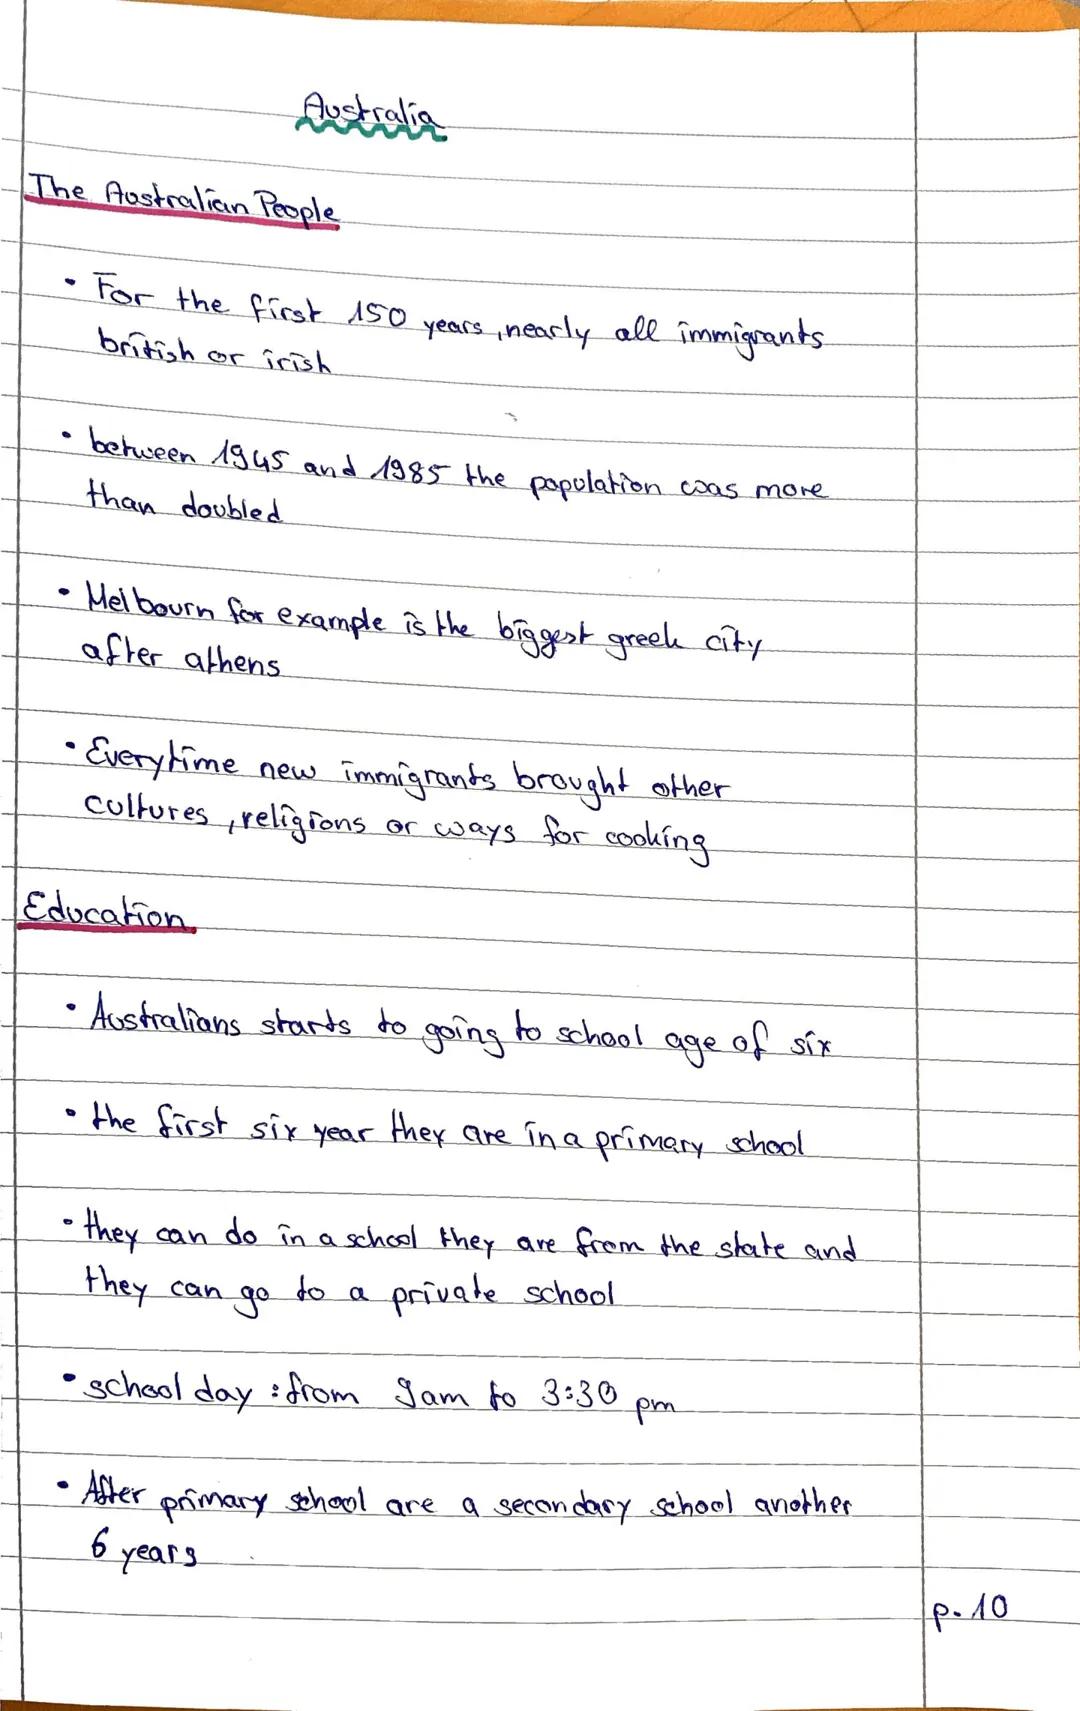 Australia
The Australian People
• For the first 150 years, nearly all immigrants
british or irish
• between 1945 and 1985 the population was more
than doubled
• Melbourn for example is the biggest greek city
after athens
• Everytime new immigrants brought other
cultures, religions or ways for cooking
Education
• Australians starts to going to school age of six
• the first six year they are in a primary school
• they can do in a school they are from the state and
they can go to a private school
• school day: from 9am to 3:30 pm
• After primary school are a secondary school another
6 years
p. 10